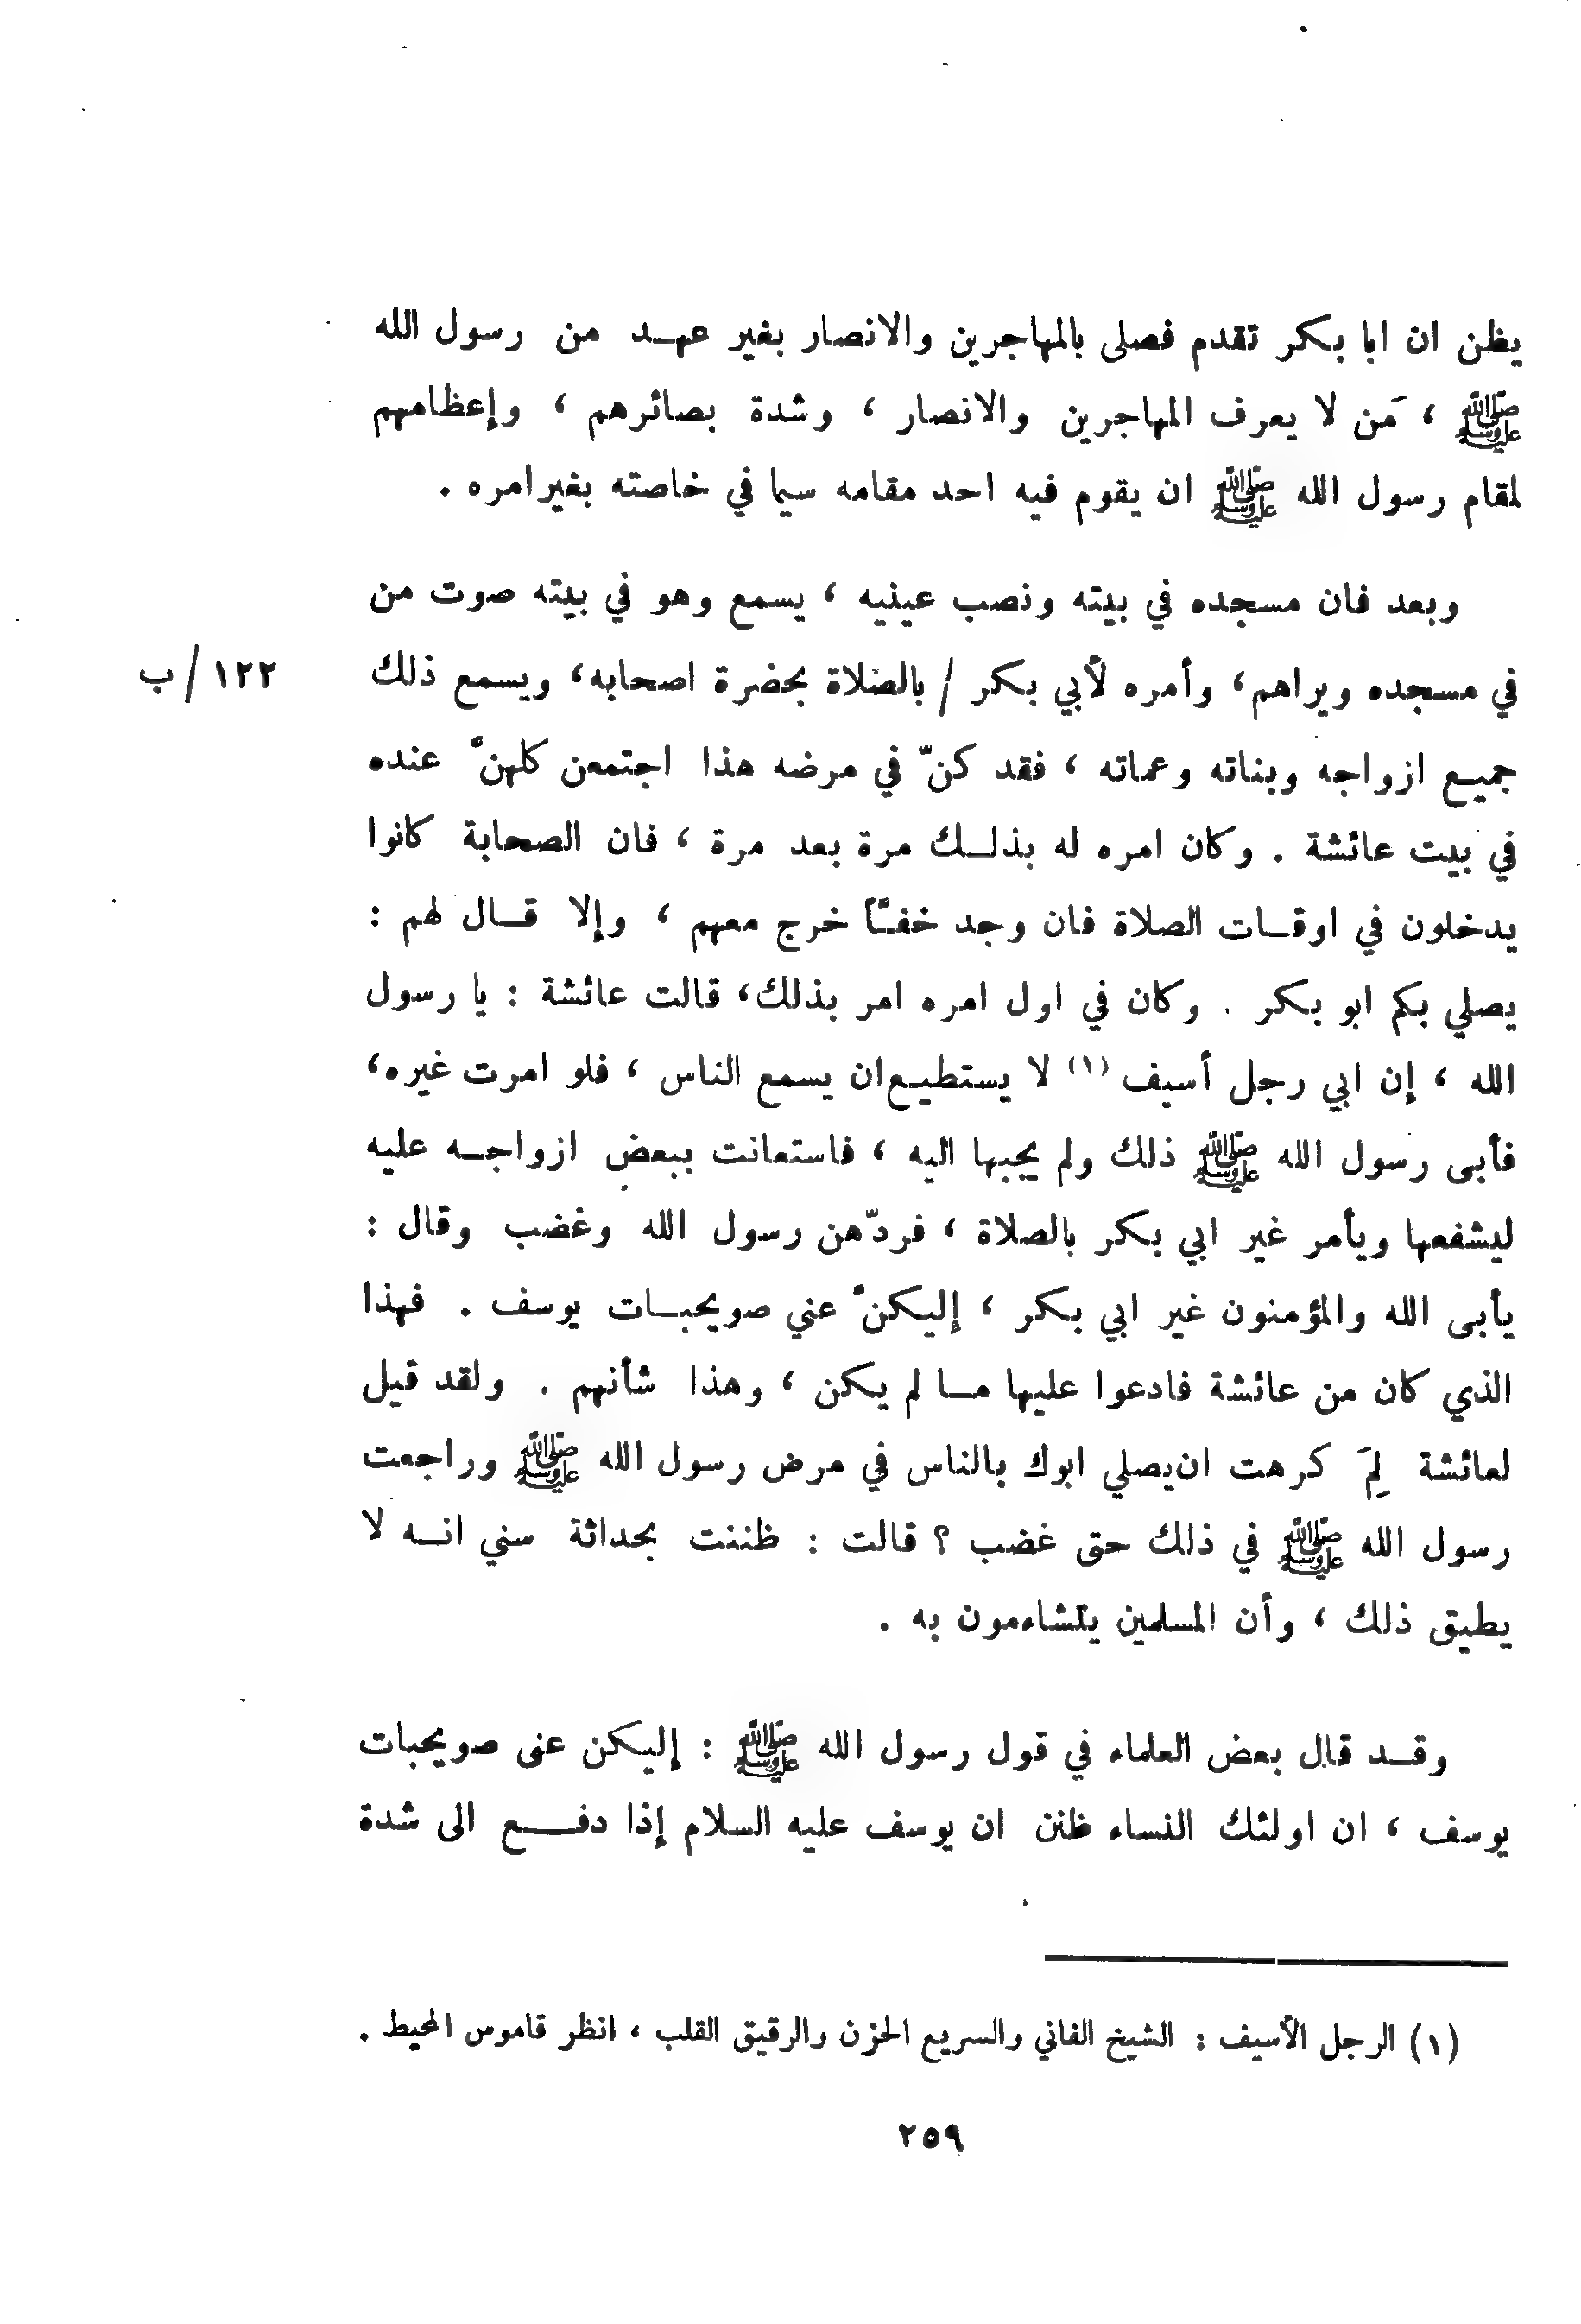 يظن ان ابا بكر تقدم فصلى بالمهاجرين والانصار بغير عهـد من رسول الله
ﷺ ، مَن لا يعرف المهاجرين والانصار ، وشدة بصائرهم ، وإعظامهم
لمقام رسول الله ﷺ ان يقوم فيه احد مقامه سيما في خاصته بغير امره .
وبعد فان مسجده في بيته ونصب عينيه ، يسمع وهو في بيته صوت من
في مسجده ويراهم ، وأمره لأبي بكر / بالصلاة بحضرة اصحابه ، ويسمع ذلك
١٢٢ / ب
جميـع ازواجه وبناته وعماته ، فقد كنّ في مرضه هذا اجتمعن كلهنّ عنده
في بيت عائشة . وكان امره له بذلـك مرة بعد مرة ، فان الصحابة كانوا
يدخلون في اوقـات الصلاة فان وجد خفـّاً خرج معهم ، وإلا قـال لهم :
يصلي بكم ابو بكر . وكان في اول امره امر بذلك ، قالت عائشة : يا رسول
الله ، إن ابي رجل أسيف (١) لا يستطيـع ان يسمع الناس ، فلو امرت غيره ،
فأبى رسول الله ﷺ ذلك ولم يجبها اليه ، فاستعانت ببعض ازواجـه عليه
ليشفعها ويأمر غير ابي بكر بالصلاة ، فردّهن رسول الله وغضب وقال :
يأبى الله والمؤمنون غير ابي بكر ، إليكنّ عني صويحبـات يوسف . فهذا
الذي كان من عائشة فادعوا عليها مـا لم يكن ، وهذا شأنهم . ولقد قيل
لعائشة لِمَ كرهت ان يصلي ابوك بالناس في مرض رسول الله ﷺ وراجعت
رسول الله ﷺ في ذلك حتى غضب ؟ قالت : ظننت بحداثة سني انـه لا
يطيق ذلك ، وأن المسلمين يتشاءمون به .
وقـد قال بعض العلماء في قول رسول الله ﷺ : إليكن عنى صويحبات
يوسف ، ان اولئك النساء ظنن ان يوسف عليه السلام إذا دفـــع الى شدة
(١) الرجل الأسيف : الشيخ الفاني والسريع الحزن والرقيق القلب ، انظر قاموس المحيط .
٢٥٩